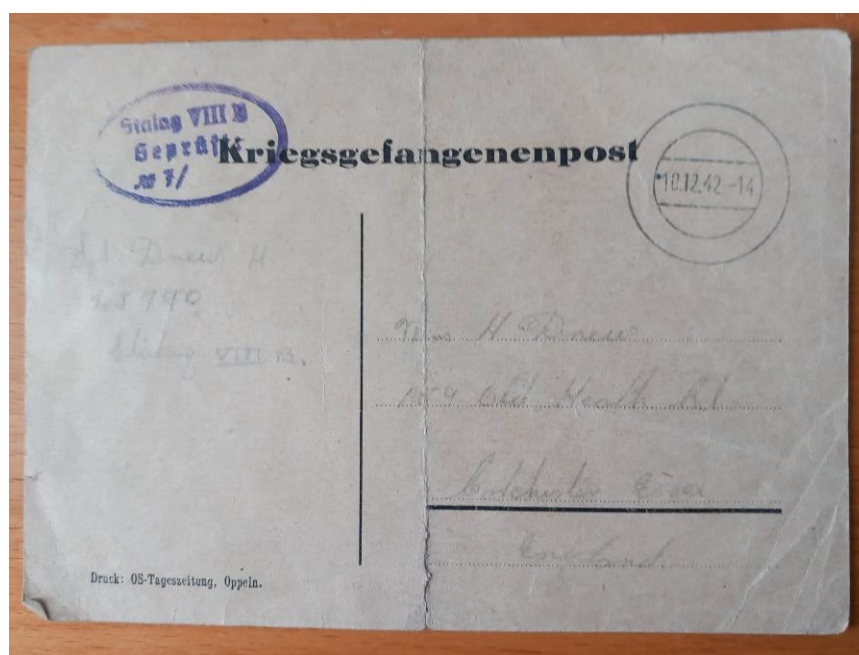 Stalag VIII B
Geprüft:
Kriegsgefangenenpost
10.12.42.-14
Drew. H
Stalag VIII B.
Mrs H Drew
Old Heath Rd
Colchester Essex
England.
Druck: OS-Tageszeitung, Oppeln.